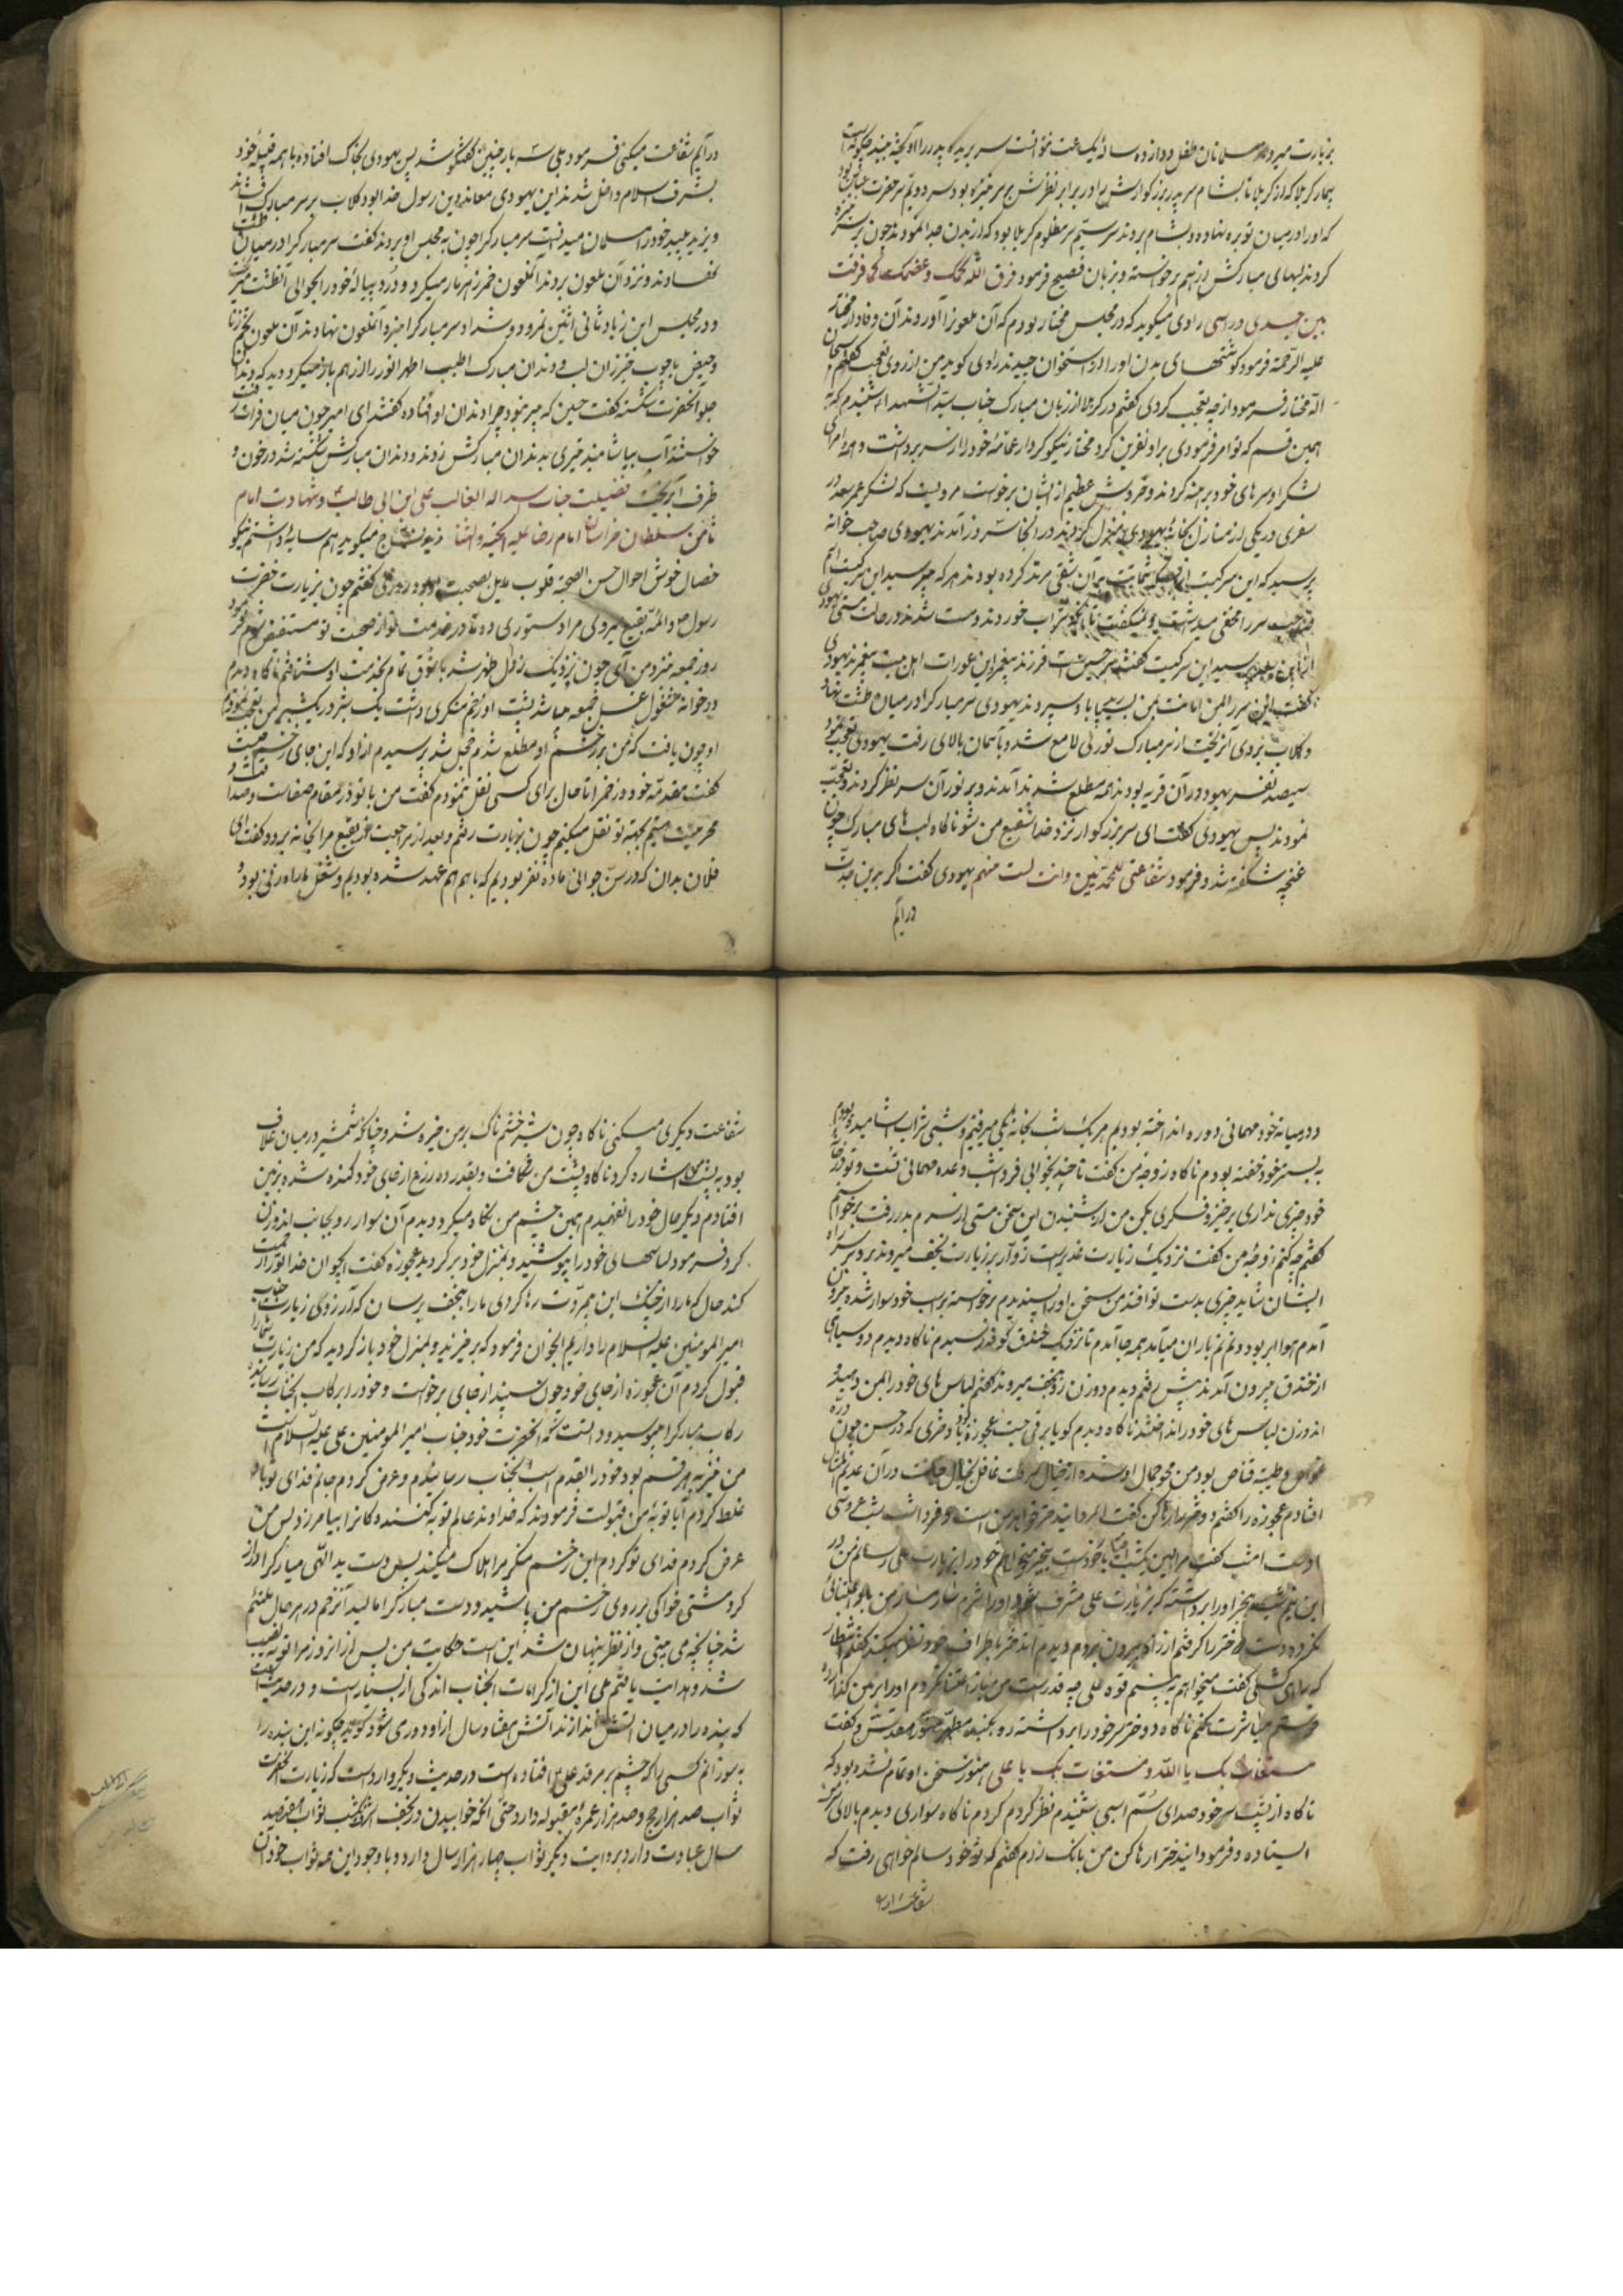 بزیارت میرود مسلمانان طفل دوازده ساله یک ساعت نتوانست سر بریده پدر را آویخته ببیند چگونه است
بیمار کربلا که از کربلا تا بشام سر پدر بزرگوارش را در برابر نظرش بر سر نیزه بود سر دویم سر حضرت عباس بود
که او را در میان توبره نهاده و بشام بردند سر سیّم سر مظلوم کربلا بود که از بدن جدا نمودند چون بر سر نیزه
کردند لبهای مبارکش از هم برخواسته و بزبان فصیح فرمود فرق الله لحمک و عضمک کما فرقت
بین جسدی و راسی راوی میگوید که در مجلس مختار بودم که آن ملعون را آوردند آن وفادار مختار
علیه الرّحمة فرمود گوشتهای بدن او را از استخوان چیدند راوی گوید من از روی تعجب گفتم سبحان
اللّه مختار فرمود از چه تعجب کردی گفتم در کربلا از زبان مبارک جناب سیّد الشهداء شنیدم که
همین قسم که تو امر فرمودی بر او نفرین کرد مختار نیکو کردار عمّامهٔ خود را از سر برداشت و امرای
لشکر او سرهای خود برهنه کردند و خروش عظیم از ایشان برخواست مرویست که لشکر عمر سعد در
سفری در یکی از منازل بخانهٔ یهودی منزل کردند در آنجا سر در آمدند یهودی صاحب خانه
پرسید که این سر کیست
شراب خوردند و مست شدند در حالت مستی یهودی
پرسید این سر کیست گفتند سر حسین است فرزند پیغمبر این عورات اهل بیت پیغمبرند یهودی
گفت این سر را بمن امانت بسپارید باو سپردند یهودی سر مبارک را در میان طشت نهاد
و گلاب بر وی آن ریخت از سر مبارک نوری لامع شد و بآسمان بالا می رفت یهودی تعجب نمود
سیصد نفر یهود در آن قریه بودند همه مطلع شدند آمدند و بر نور آن سر نظر کردند و تعجّب
نمودند پس یهودی گفت ای سر بزرگوار نزد خدا شفیع من شو ناگاه لب های مبارک چون
غنچه شکفته شد و فرمود شفاعتی للمحمّدیین و انت لست منهم یهودی گفت اگر بدین جدّت
درآیم
درآیم شفاعت میکنی فرمود بلی سه بار چنین گفتگو شد پس یهودی بخاک افتاده با همه قبیلهٔ خود
بشرف اسلام داخل شدند این یهودی معاند دین رسول خدا بود گلاب بر سر مبارک افشاند
و یزید پلید خود را مسلمان میدانست سر مبارک را چون به مجلس او بردند گفت سر مبارک را در میان طشت
نهادند و نزد آن ملعون بردند آنملعون خمر زهرمار میکرد و درد پیالهٔ خود را بحوالی آنطشت میریخت
و در مجلس ابن زیاد ثانی اثنین نمرود و شداد سر مبارک را نزد آنملعون نهادند آن ملعون
و حیض با چوب خیزران لب و دندان مبارک اطیب اطهر انور را از هم باز میکرد دید که دندان
جلو آنحضرت شکسته گفت حسین که پیر نبود چرا دندان او افتاده گفتند ای امیر چون میان فرات رفت
خواست آب بیاشامد تیری بدندان مبارکش زدند و دندان مبارکش شکسته شد و خون
ظرف آب ریخت فضیلت جناب اسد الله الغالب علی ابن ابی طالب و شهادت امام
ثامن سلطان خراسان امام رضا علیه التحیّة و الثنا زید نساج میگوید همسایهٔ داشتم نیکو
خصال خوش احوال حسن الصحبة قلوب مایل بصحبت او بود روزی گفتم چون بزیارت حضرت
رسول ص و ائمّه بقیع میروی مرا دستوری ده تا در خدمت تو از صحبت تو مستفیض شوم فرمود
روز جمعه نزد من آی چون نزدیک زوال ظهر شد با شوق تمام بخدمت او شتافتم ناگاه دیدم
در خانه مشغول غسل جمعه میباشد پشت او زخم منکری داشت یک شبر در یک شبر
او چون یافت که من بر زخم او مطلع شدم خجل شد پرسیدم از او که این جای زخم چیست
گفت مقدمه خود و زخم را تا حال برای کسی نقل ننمودم گفت من با تو در مقام صفا و صداقت
محرمیت هستم بجهة تو نقل میکنم چون بزیارت رفتم و بعد از مراجعت از بقیع مرا بخانه برد و گفت ای
فلان بدان که در سن جوانی ما ده نفر بودیم که با هم هم عهد شده بودیم و شغل ما راه زنی بود و
در میانه خود مهمانی دوره انداخته بودیم هر یک شب بخانه یکی میرفتیم و شبی شراب آشامیده بودم
به بستر خود خفته بودم ناگاه زوجه من گفت تا چند بخوابی فردا شب وعده مهمانی تست و تو در خانه
خود چیزی نداری برخیز و فکری بکن من از شنیدن این سخن مستی از سرم بدر رفت برخواستم
گفتم چه کنم زوجهٔ من گفت نزدیک زیارت غدیر است زوّار بر زیارت نجف میروند برو بر سر راه
ایشان شاید چیزی بدست تو افتد من سخن او را پسندیدم برخواسته بر اسب خود سوار شده بیرون
آمدم هوا ابر بود و نم نم باران میآمد همه جا آمدم تا نزدیک خندق کوفه رسیدم ناگاه دیدم دو سیاهی
از خندق بیرون آمدند پیش رفتم دیدم دو زن رو بنجف میروند گفتم لباس های خود را بمن دهید
آندو زن لباس های خود را انداختند ناگاه دیدم گویا برقی جست عجوزه بود با دختری که در حسن چون درّه
غواص و طیبهٔ قناص بود من محو جمال او شده از خیال
افتادم عجوزه را گفتم دختر را رها کن گفت ایمرد این دختر خواهر من است و فردا شب شب عروسی
اوست امشب گفت مرا
این نیم شب بیخبر او را برداشته که بزیارت علی مشرف نمود
نکرده دست دختر را گرفتم از راه بیرون بردم دیدم آندختر باطراف خود نظر میکند گفتم انتظار
که را می کشی گفت میخواهم به بینم قوه علی چه قدر است من باز اعتنا نکردم او را بر زمین
خواستم مباشرت کنم ناگاه دختر سر خود را برداشته رو بگنبد مطهر منور مقدس و گفت
مستغاث بک یا اللّه و مستغاث بک یا علی هنوز سخن او تمام نشده بود که
ناگاه از پشت سر خود صدای سُم اسبی شنیدم نظر کردم ناگاه سواری دیدم بالای سرم
ایستاده و فرمود این دختر را رها کن من بانک زدم گفتم که تو خود سالم خواهی رفت که
شفاعت دیگری میکنی ناگاه چون شیر خشم ناک بر من خیره شد و چنانکه شمشیر در میان غلاف
بود به پشت من اشاره کرد ناگاه پشت من شکافت و بقدر ده زرع از جای خود کنده شده بزمین
افتادم دیگر حال خود را نفهمیدم همین چشم من نگاه میکرد دیدم آن سوار رو بجانب آندو زن
کرد فرمود لباسهای خود را بپوشید و بمنزل خود برگردید عجوزه گفت ایجوان خدا تو را رحمت
کند حال که ما را از چنگ این بیمروّت رها کردی ما را بنجف برسان که آرزوی زیارت جناب
امیر المومنین علیه السلام را داریم ایجوان فرمود که برخیزید و بمنزل خود بازگردید که من زیارت شما را
قبول کردم آن عجوزه از جای خود چون سپند از جای برخواست و خود را برکاب آنجناب رسانید
رکاب مبارک را ببوسید و دانست که آنحضرت خود جناب امیر المومنین علی علیه السّلام است
من نیز به هر قسم بود خود را بقدم اسب آنجناب رسانیدم و عرض کردم جانم فدای تو باد
غلط کردم آیا توبهٔ من قبولست فرمودند که خداوند عالم توبه کنندگان را بیامرزد پس من
عرض کردم فدای تو گردم این زخم منکر مرا هلاک میکند پس دست ید اللّهی مبارک را دراز
کرد مشتی خاکی بر روی زخم من پاشید و دست مبارک را مالید آنزخم در هر حال ملتئم
شد چنانچه می بینی و از نظر پنهان شد این است حکایت من پس از آنروز مرا توبه نصیب
شد و هدایت یافتم بلی این از کرامات آنجناب اندکی از بسیار است و در حدیث است
که بنده را در میان آتش اندازند آتش هفتاد سال از او دوری شود گوید چگونه این بنده را
بسوزانم کسی را که چشم بر مرقد علی ع افتاده است و در حدیث دیگر وارد است که زیارت آنحضرت
ثواب صد هزار حج و صد هزار عمره مقبوله دارد حتی آنکه خوابیدن در نجف اشرف یکشب ثواب هفتصد
سال عبادت دارد بروایت دیگر ثواب چهار هزار سال دارد و با وجود این همه ثواب خود آن